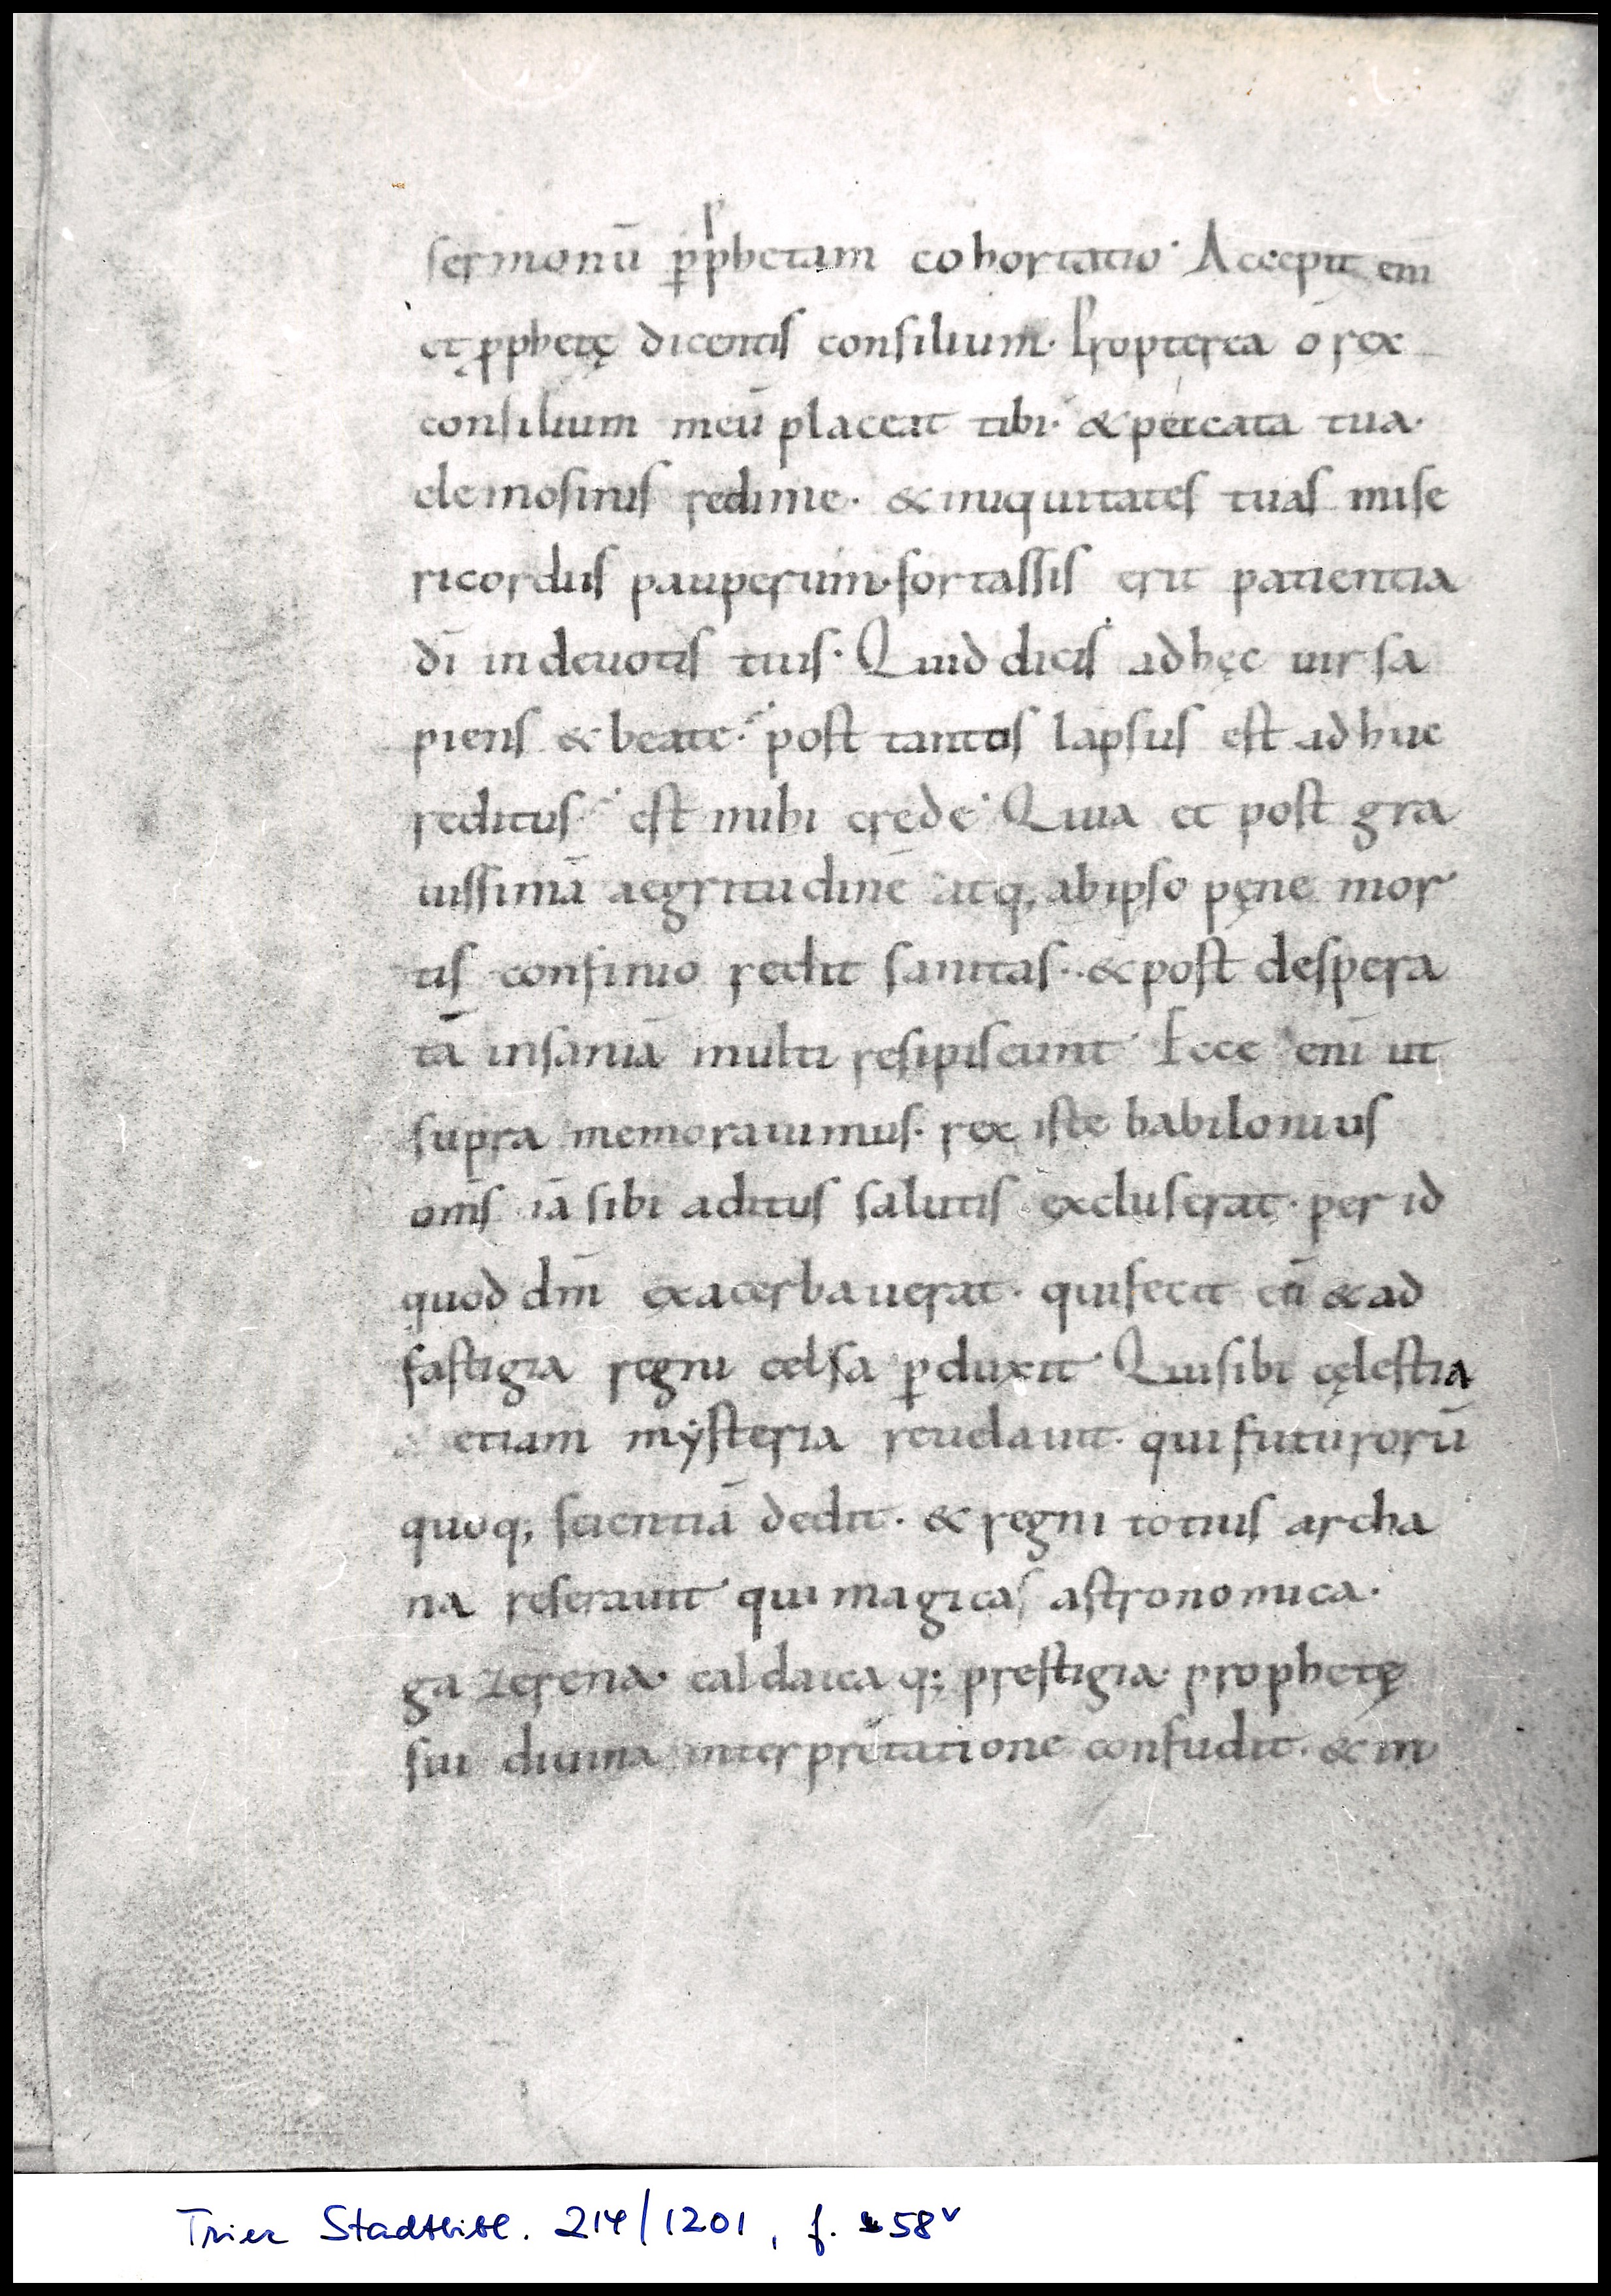 sermonū p̱phetam cohortatio· Accepit enī
et p̱phetę dicentis consilium· Propterea o rex
consilium meū placeat tibi· & peccata tua·
elemosinis redime· & iniquitates tuas mise
ricordiis pauperum· fortassis erit patientia
dī indeuotis tuis· Quid dicis adhęc uir sa
piens & beate· post tantos lapsus est adhuc
reditus· est mihi crede· Quia et post gra
uissimā aegritudinē atq; abipso pęne mor
tis confinio redit sanitas· & post despera
tā insaniā multi resipiscunt· Ecce enī ut
supra memorauimus· rex iste babilonius
om̄s iā sibi aditus salutis excluserat· per id
quod dm̄ exacerbauerat· qui fecit eū & ad
fastigia regni celsa p̱duxit· Qui sibi cęlestia
etiam mysteria reuelauit· qui futurorū
quoq; scientiā dedit· & regni totius archa
na reserauit qui magicas astronomica·
gazerena· caldaica q; prestigia· prophetę
sui diuina interpretatione confudit· & in
Trier Stadtbibl. 214/1201, f. 58v